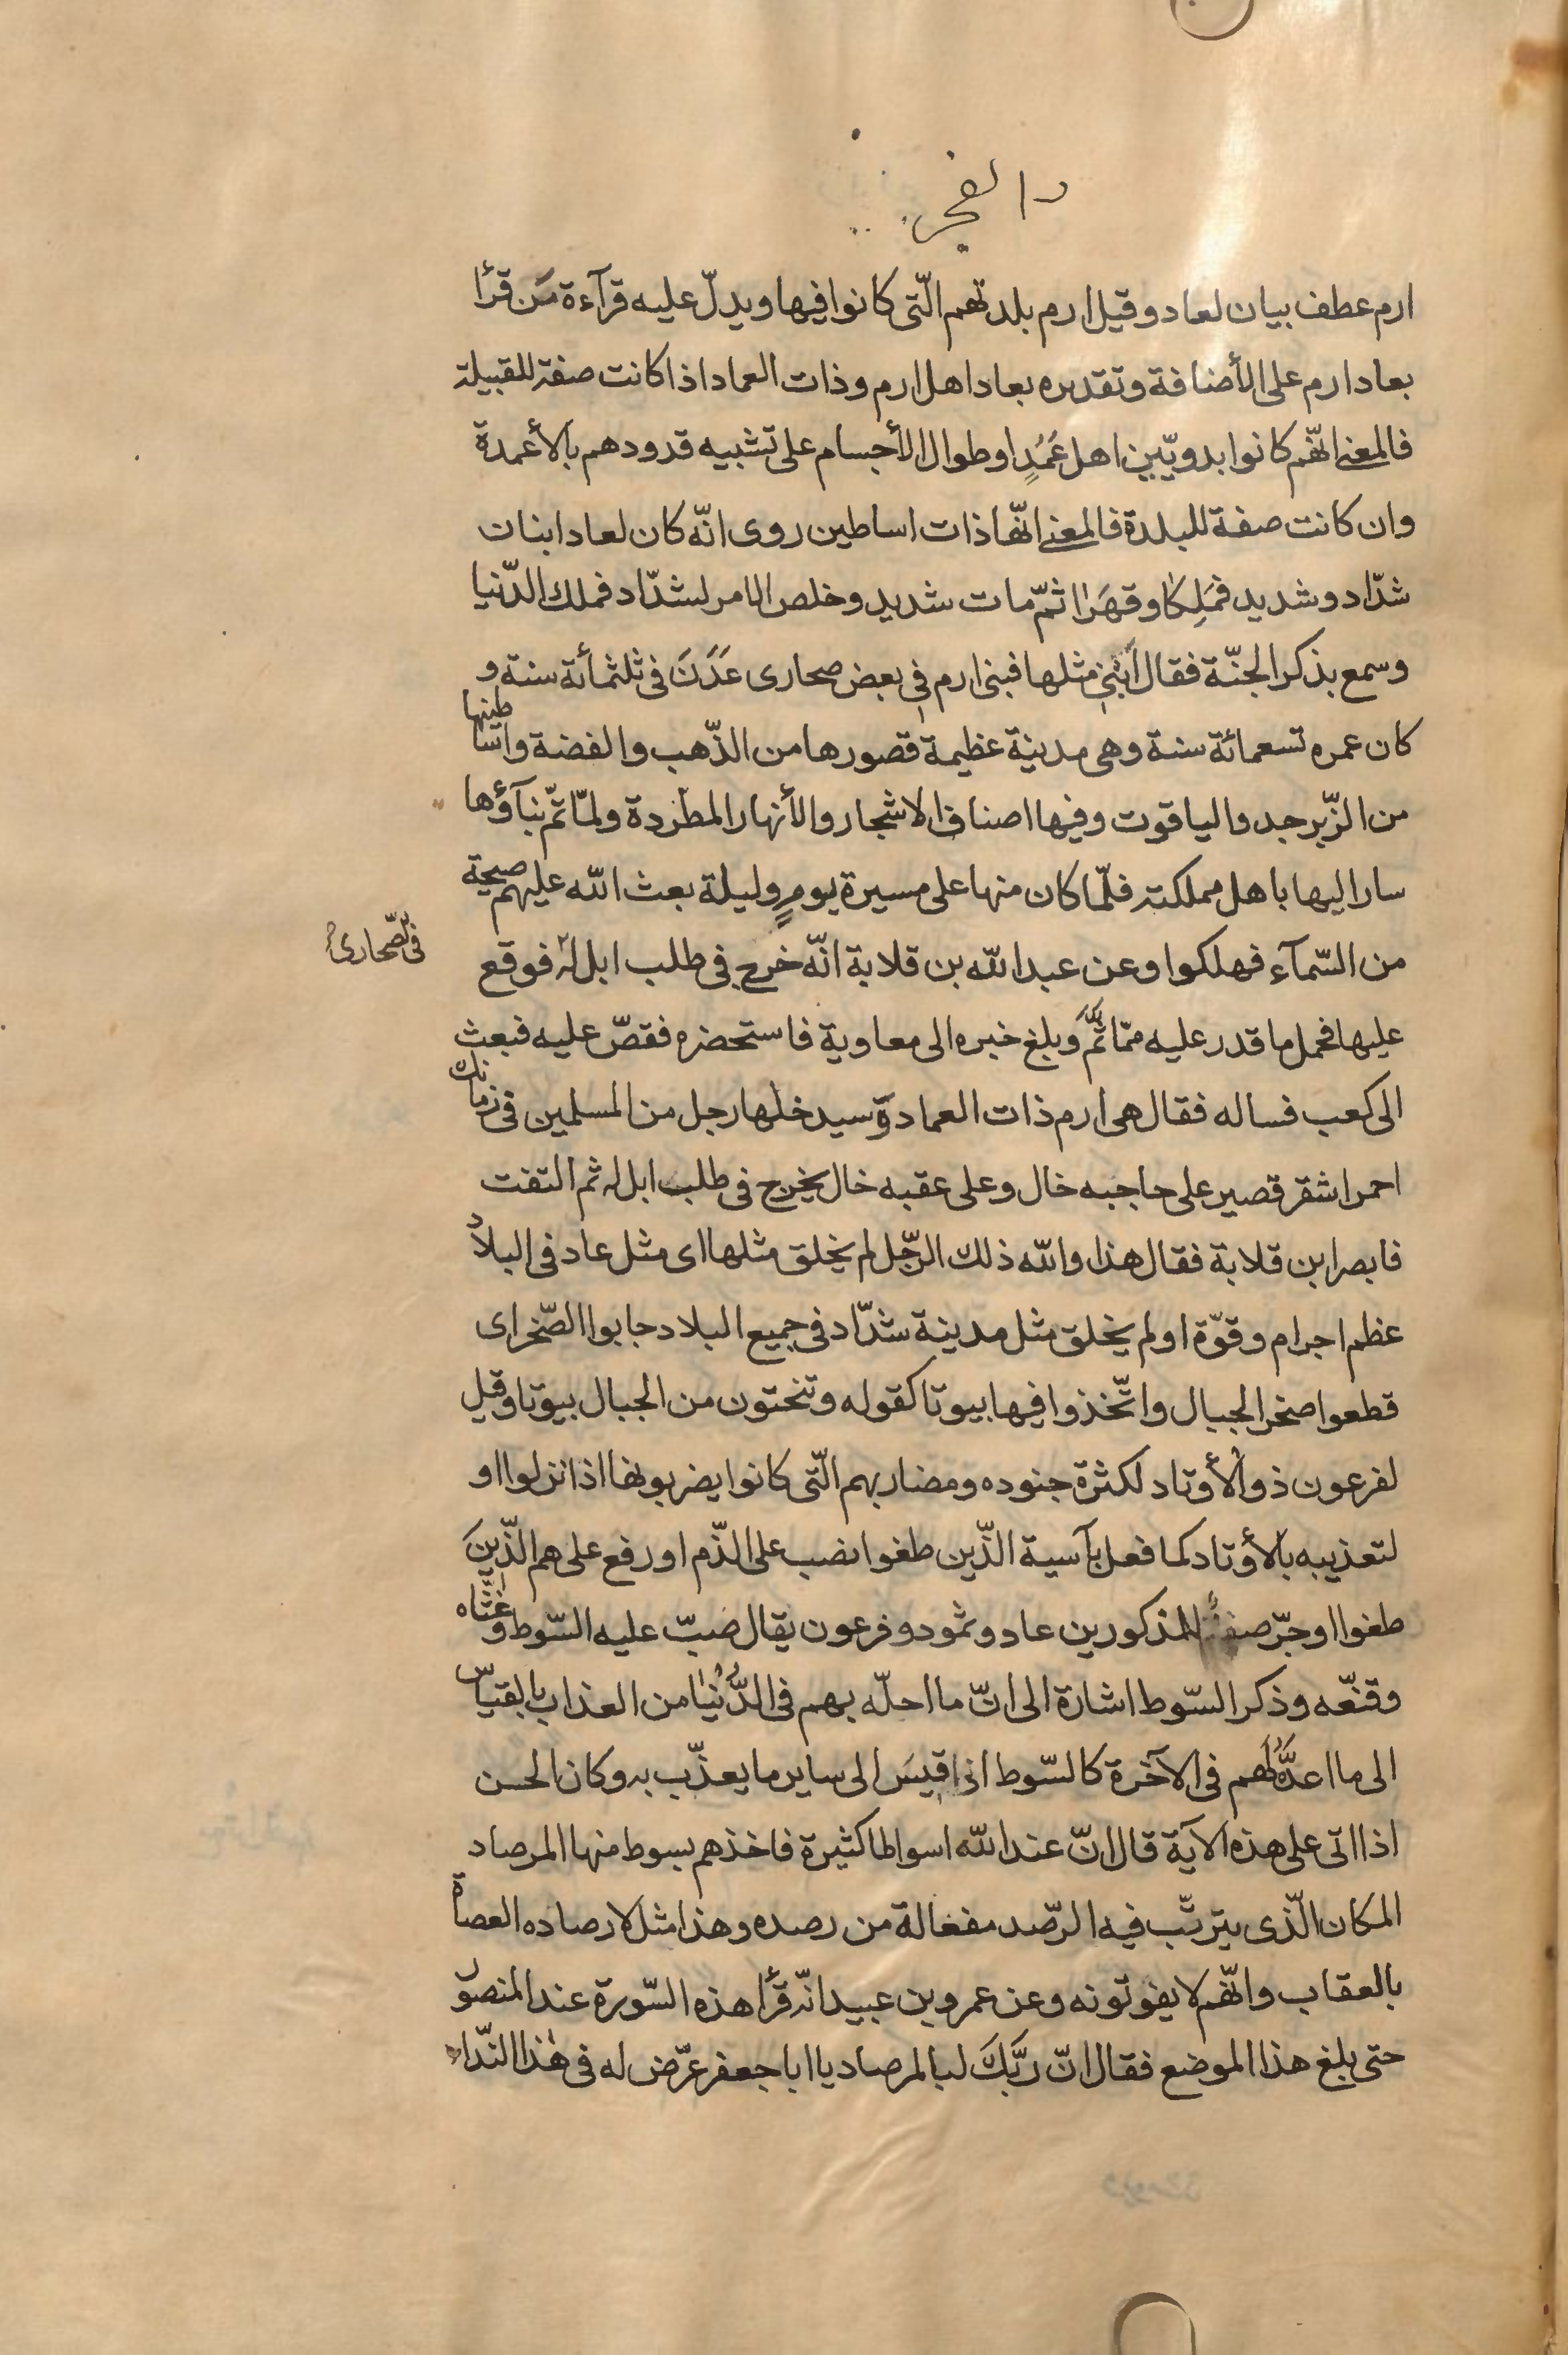 والفجر
ارم عطف بيان لعاد وقيل ارم بلدتهم الّتى كانوا فيها ويدلّ عليه قرآءة مَن قرأ
بعاد ارم على الأضافة وتقديره بعاد اهل ارم وذات العماد اذا كانت صفة للقبيلة
فالمعنى انّهم كانوا بدويّين اهل عَمُدٍ او طوال الأجسام على تشبيه قدودهم بالأعمدة
وان كانت صفة للبلدة فالمعنى انّها ذات اساطين روى انّه كان لعاد ابنان
شدّاد وشديد فمَلِكا وقهَرا ثمّ مات شديد وخلص الامر لشدّاد فملك الدّنيا
وسمع بذكر الجنّة فقال اَبْنِى مثلها فبنى ارم فى بعض صحارى عَدَنَ فى ثلثمأئة سنة و
كان عمره تسعمائة سنة وهى مدينة عظيمة قصورها من الذّهب والفضة واساطينها
من الزّبرجد والياقوت وفيها اصناف الاشجار والأنهار المطّردة ولمّا تمّ بنآؤها
سار اليها باهل مملكته فلمّا كان منها على مسيرة يومٍ وليلة بعث الله عليهم صيحة
من السّمآء فهلكوا وعن عبد الله بن قلابة انّه خرج فى طلب ابل له فوقع
فى الصّحارى
عليها فحمل ما قدر عليه ممّا ثَمَّ وبلغ خبره الى معاوية فاستحضره فقصّ عليه فبعث
الى كعب فساله فقال هى ارم ذات العماد وسيدخلها رجل من المسلمين فى زمانك
احمر اشقر قصير على حاجبه خال وعلى عقبه خال يخرج فى طلب ابل له ثم التفت
فابصر ابن قلابة فقال هذا والله ذلك الرّجل لم يخلق مثلها اى مثل عاد فى البلاد
عظم اجرام وقوّة او لم يخلق مثل مدينة شدّاد فى جميع البلاد جابوا الصّخر اى
قطعوا صخر الجبال واتّخذوا فيها بيوتا كقوله وتنحتون من الجبال بيوتا وقيل
لفرعون ذو الأوتاد لكثرة جنوده ومضاربهم الّتى كانوا يضربونها اذا نزلوا او
لتعذيبه بالأوتاد كما فعل بآسية الذّين طغوا نصب على الذّم او رفع على هم الذّينَ
طغوا او جرّ صفة للمذكورين عاد وثمود وفرعون يقال صبّ عليه السّوط وغشّاه
وقنّعه وذكر السّوط اشارة الى انّ ما احلّه بهم فى الدُّنْيَا من العذاب بالقياس
الى ما اعدَّهُ لَهم فى الآخرة كالسّوط اذا قيسَ الى ساير ما يعذّب به وكان الحسن
اذا اتى على هذه الآية قال انّ عند الله اسواطا كثيرة فاخذهم بسوط منها المرصاد
المكان الّذى يترتّب فيه الرّصد مفعالة من رصده وهذا مثل لارصاده العصاة
بالعقاب وانّهم لا يفوتونه وعن عمرو بن عبيد انّه قرأ هذه السّورة عند المنصور
حتى بلغ هذا الموضع فقال انّ ربَّكَ لبالمرصاد يا ابا جعفر عرّض له فى هٰذا النّداء